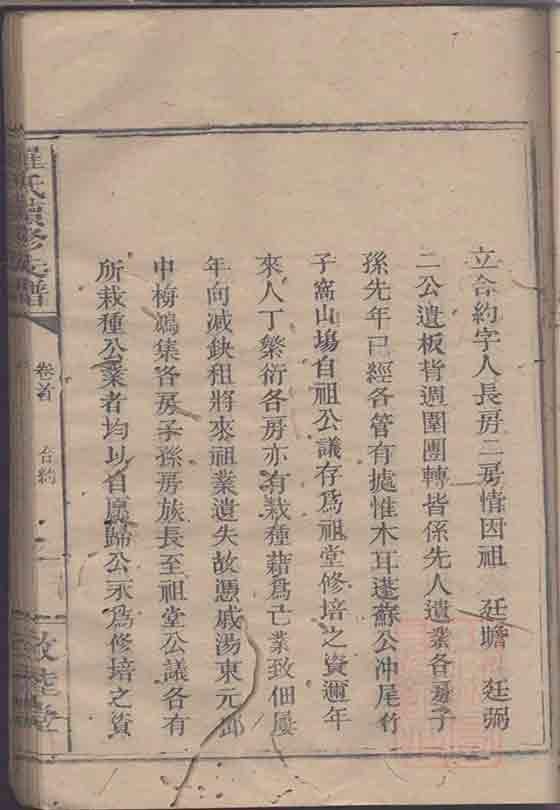 立合約字人長房二房情因祖 廷贍 廷弼
二公遺板背週圍團轉皆係先人遺業各房子
孫先年已經各管有據惟木耳蓬蘇公冲尾竹
子窩山塲自祖公議存爲祖堂修培之資邇年
來人丁繁衍各房亦有栽種藉爲己業致佃屢
年向減鈌租將來祖業遺失故憑戚湯東元鄧
申梅鴻集各房子孫房族長至祖堂公議各有
所栽種公業者均以自願歸公永爲修培之資
羅氏續修族譜
卷首
合約
敦睦堂